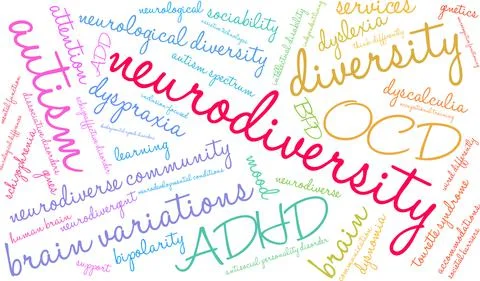 neurological
sociability
services
genetics
attention
ADD
neurological diversity
dyslexia
think differently
intellectual disability
autism
autism spectrum
neurodiversity
diversity
dyspraxia
inclusion focused
BPD
OCD
dyscalculia
occupational training
learning
schizophrenia
genes
neurodiverse community
neurodevelopmental conditions
mood
neurodiverse
wired differently
human brain
neurodivergent
brain variations
ADHD
brain
communication
dysnomia
tourette syndrome
accommodations
societal barriers
support
bipolarity
antisocial personality disorder